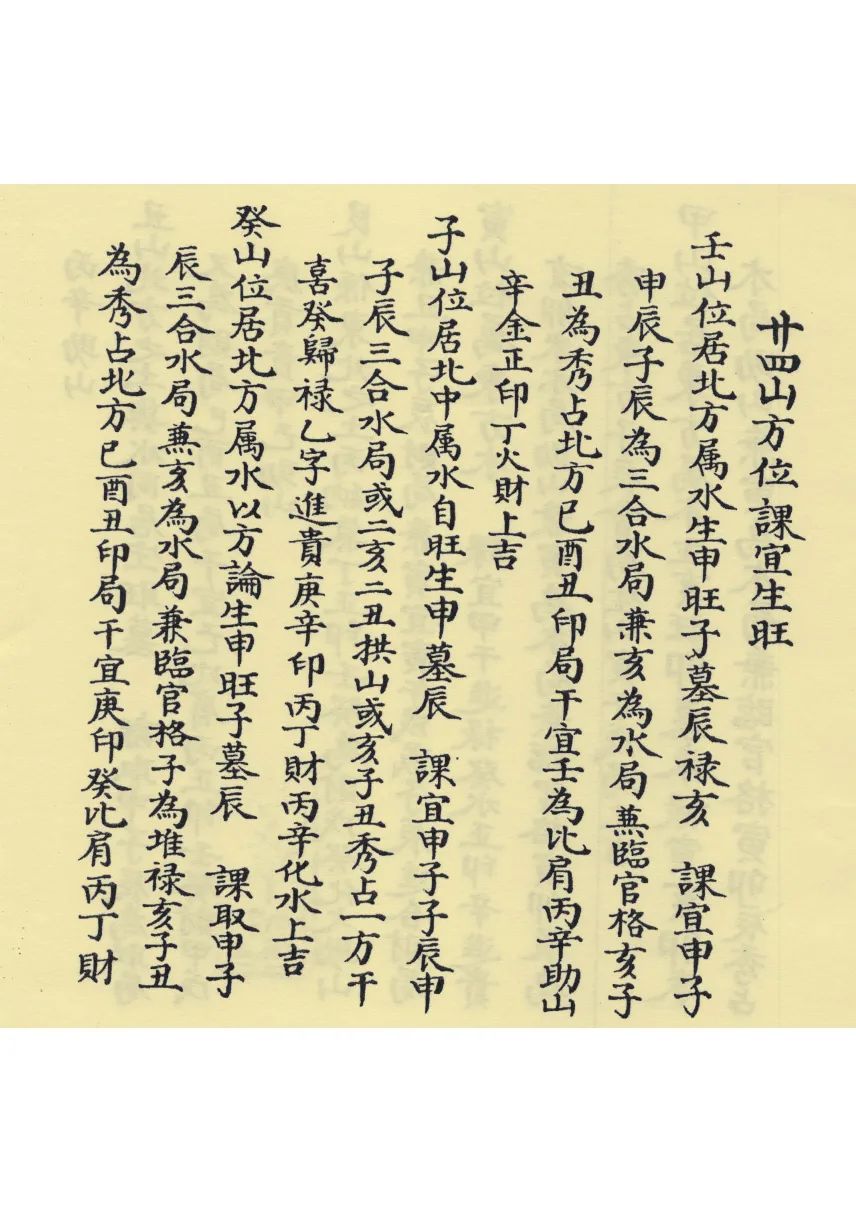 廿四山方位課宜生旺
壬山位居北方属水生申旺子墓辰禄亥　課宜申子
申辰子辰為三合水局兼亥為水局兼臨官格亥子
丑為秀占北方巳酉丑印局干宜壬為比肩丙辛助山
辛金正印丁火財上吉
子山位居北中属水自旺生申墓辰　課宜申子子辰申
子辰三合水局或二亥二丑拱山或亥子丑秀占一方干
喜癸歸禄乙字進貴庚辛印丙丁財丙辛化水上吉
癸山位居北方属水以方論生申旺子墓辰　課取申子
辰三合水局兼亥為水局兼臨官格子為堆禄亥子丑
為秀占北方巳酉丑印局干宜庚印癸比肩丙丁財